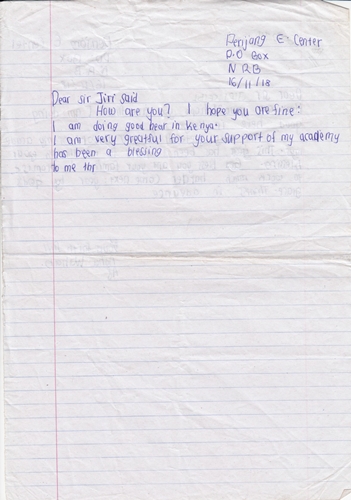 Penjang E. Center
P.O Box
NRB
16/11/18
Dear sir Jiri said
How are you? I hope you are fine:
I am doing good hear in Kenya.
I am very greatful for your support of my academy
has been a blessing
to me thr